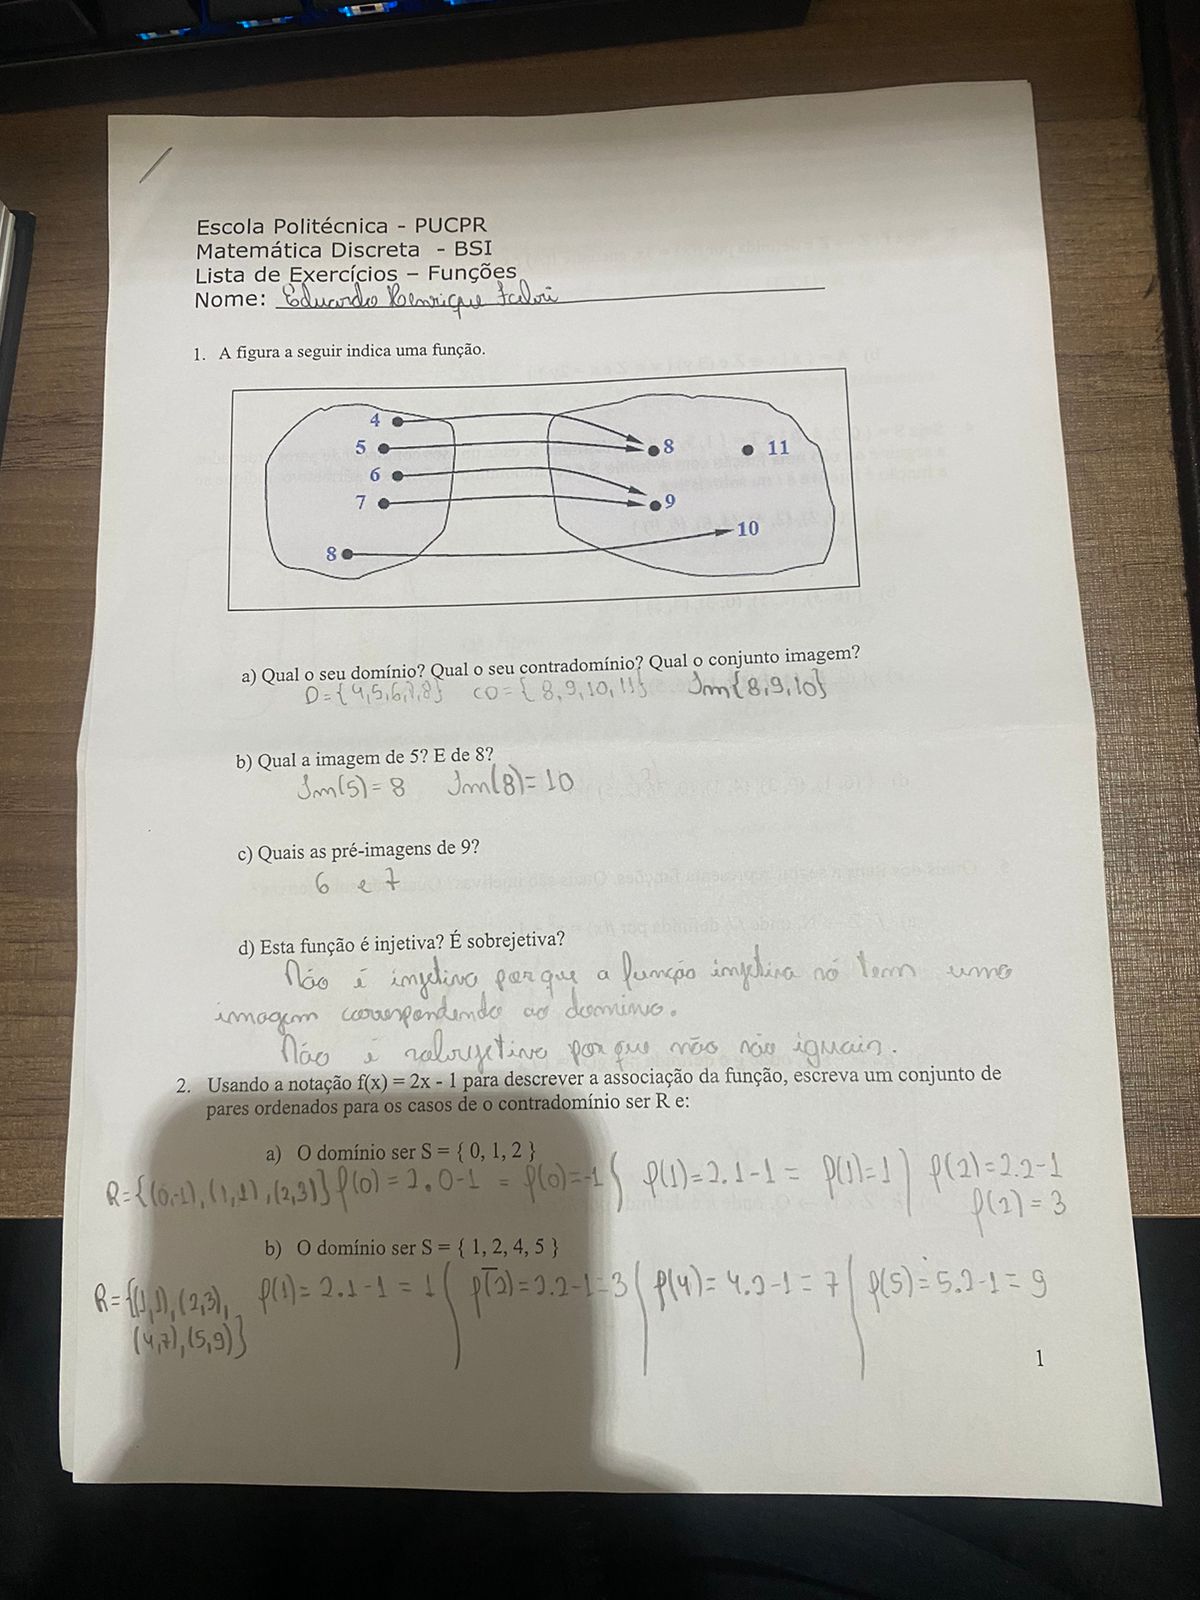 Escola Politécnica - PUCPR
Matemática Discreta - BSI
Lista de Exercícios – Funções
Nome: Eduardo Henrique
1. A figura a seguir indica uma função.
4
5
6
7
8
8
11
9
10
a) Qual o seu domínio? Qual o seu contradomínio? Qual o conjunto imagem?
D={4,5,6,7,8} CD={8,9,10,11} Im{8,9,10}
b) Qual a imagem de 5? E de 8?
Im(5)=8 Im(8)=10
c) Quais as pré-imagens de 9?
6 e 7
d) Esta função é injetiva? É sobrejetiva?
Não é injetiva porque a função injetiva só tem uma
imagem correspondendo ao domínio.
Não é sobrejetiva porque não são iguais.
2. Usando a notação f(x) = 2x - 1 para descrever a associação da função, escreva um conjunto de
pares ordenados para os casos de o contradomínio ser R e:
a) O domínio ser S = { 0, 1, 2 }
R={(0,-1),(1,1),(2,3)} f(0)=2.0-1 = f(0)=-1 f(1)=2.1-1= f(1)=1 f(2)=2.2-1
f(2)=3
b) O domínio ser S = { 1, 2, 4, 5 }
R={(1,1),(2,3), f(1)=2.1-1=1 f(2)=2.2-1=3 f(4)=4.2-1=7 f(5)=5.2-1=9
(4,7),(5,9)}
1